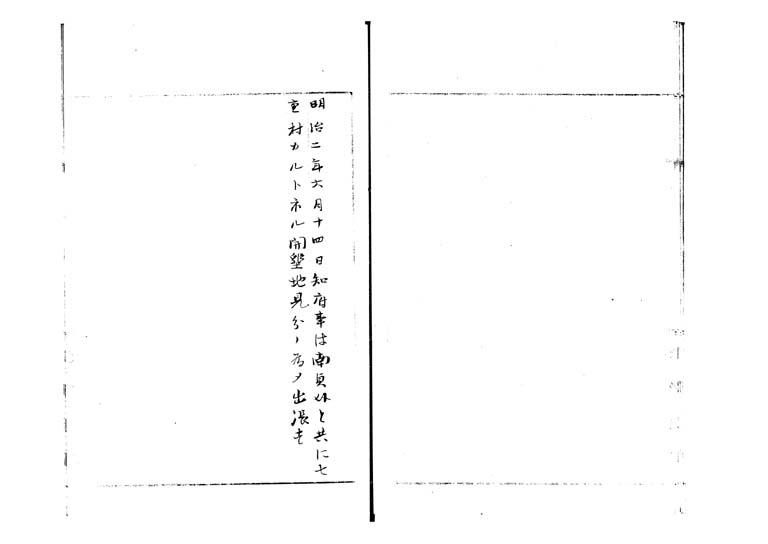 明治二年六月十四日知府事は南貞外と共に七
重村カルトネル開墾地見分ノ為メ出張す